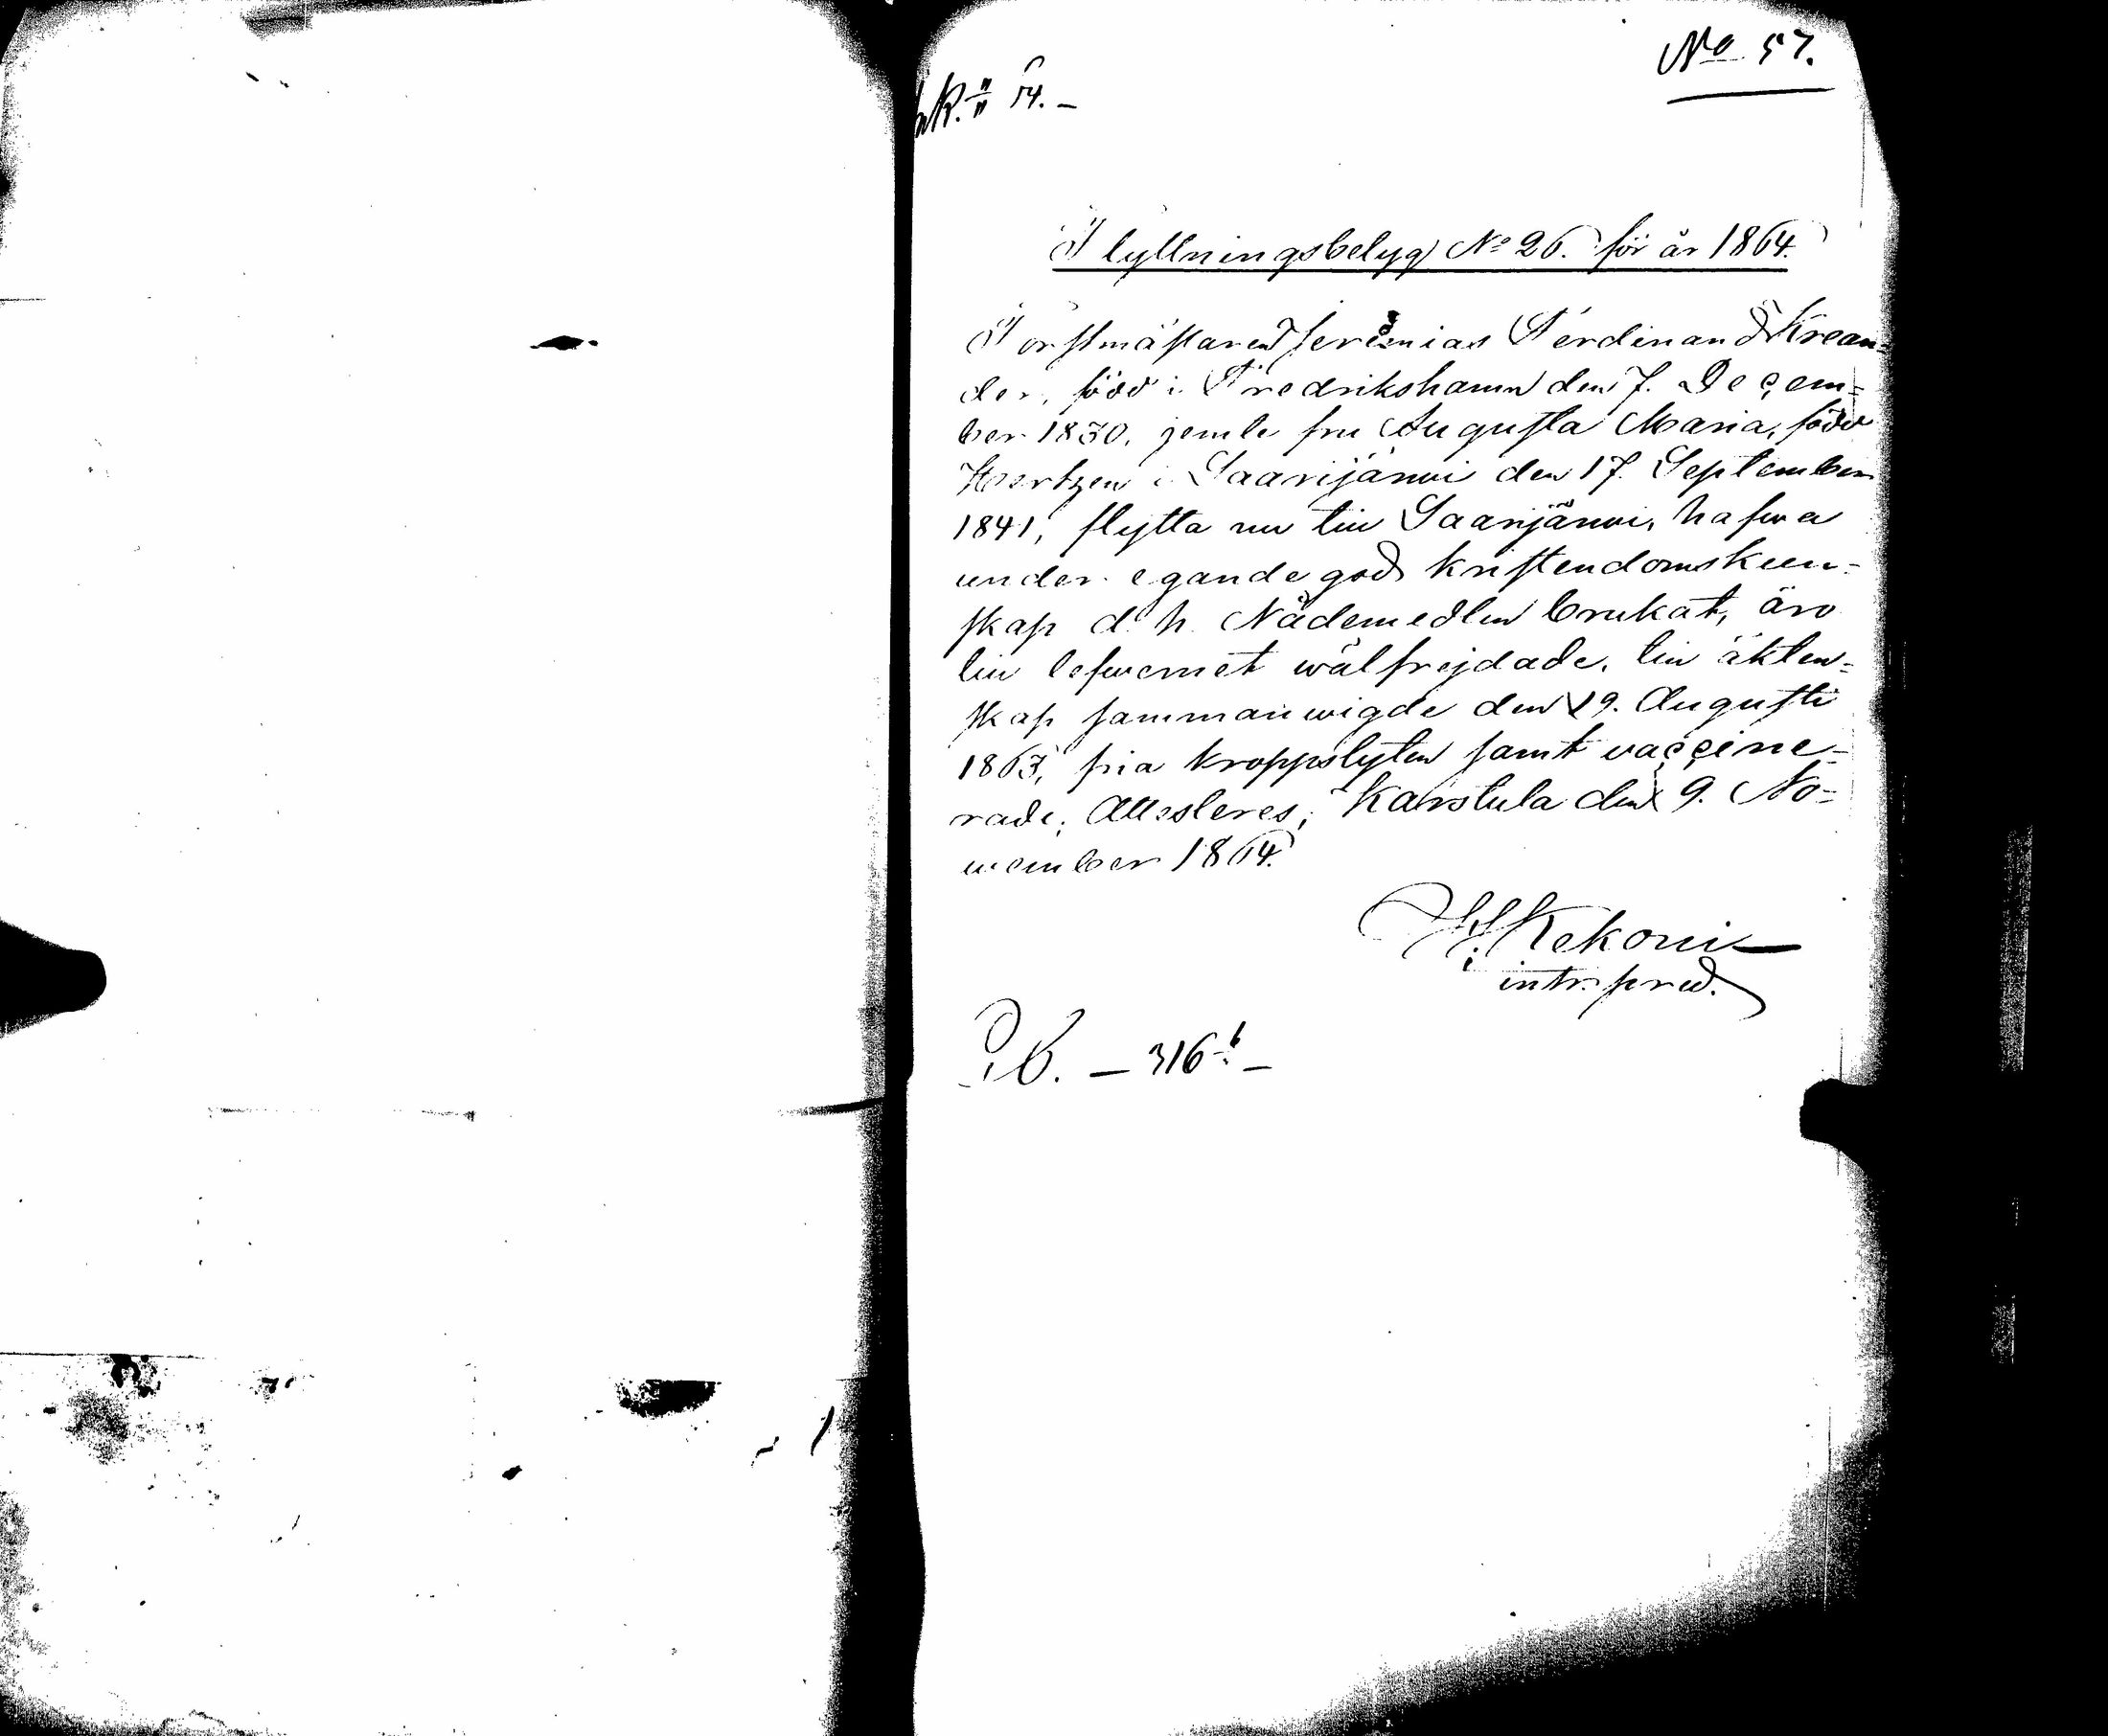 No 57.
Flyttningsbetyg No 26. för år 1864.
Forstmästaren Jeremias Ferdinand Krean=
der, född i Fredrikshamn den 7. Decem=
ber 1830, jemte fru Augusta Maria, född
Hertzen i Saarijärwi den 17. September
1841, flytta nu till Saarijärwi, hafwa
under egande god kristendomskun=
skap d. h. Nådemedlen brukat, äro
till lefwernet wälfrejdade, till äkten=
skap sammanwigde den 19. Augusti
1863, fria kroppslyten samt vaccine=
rade; Attesteres; Karstula den 9. No=
wember 1864.
H. Kekoni
intr. pred.
— 316 —